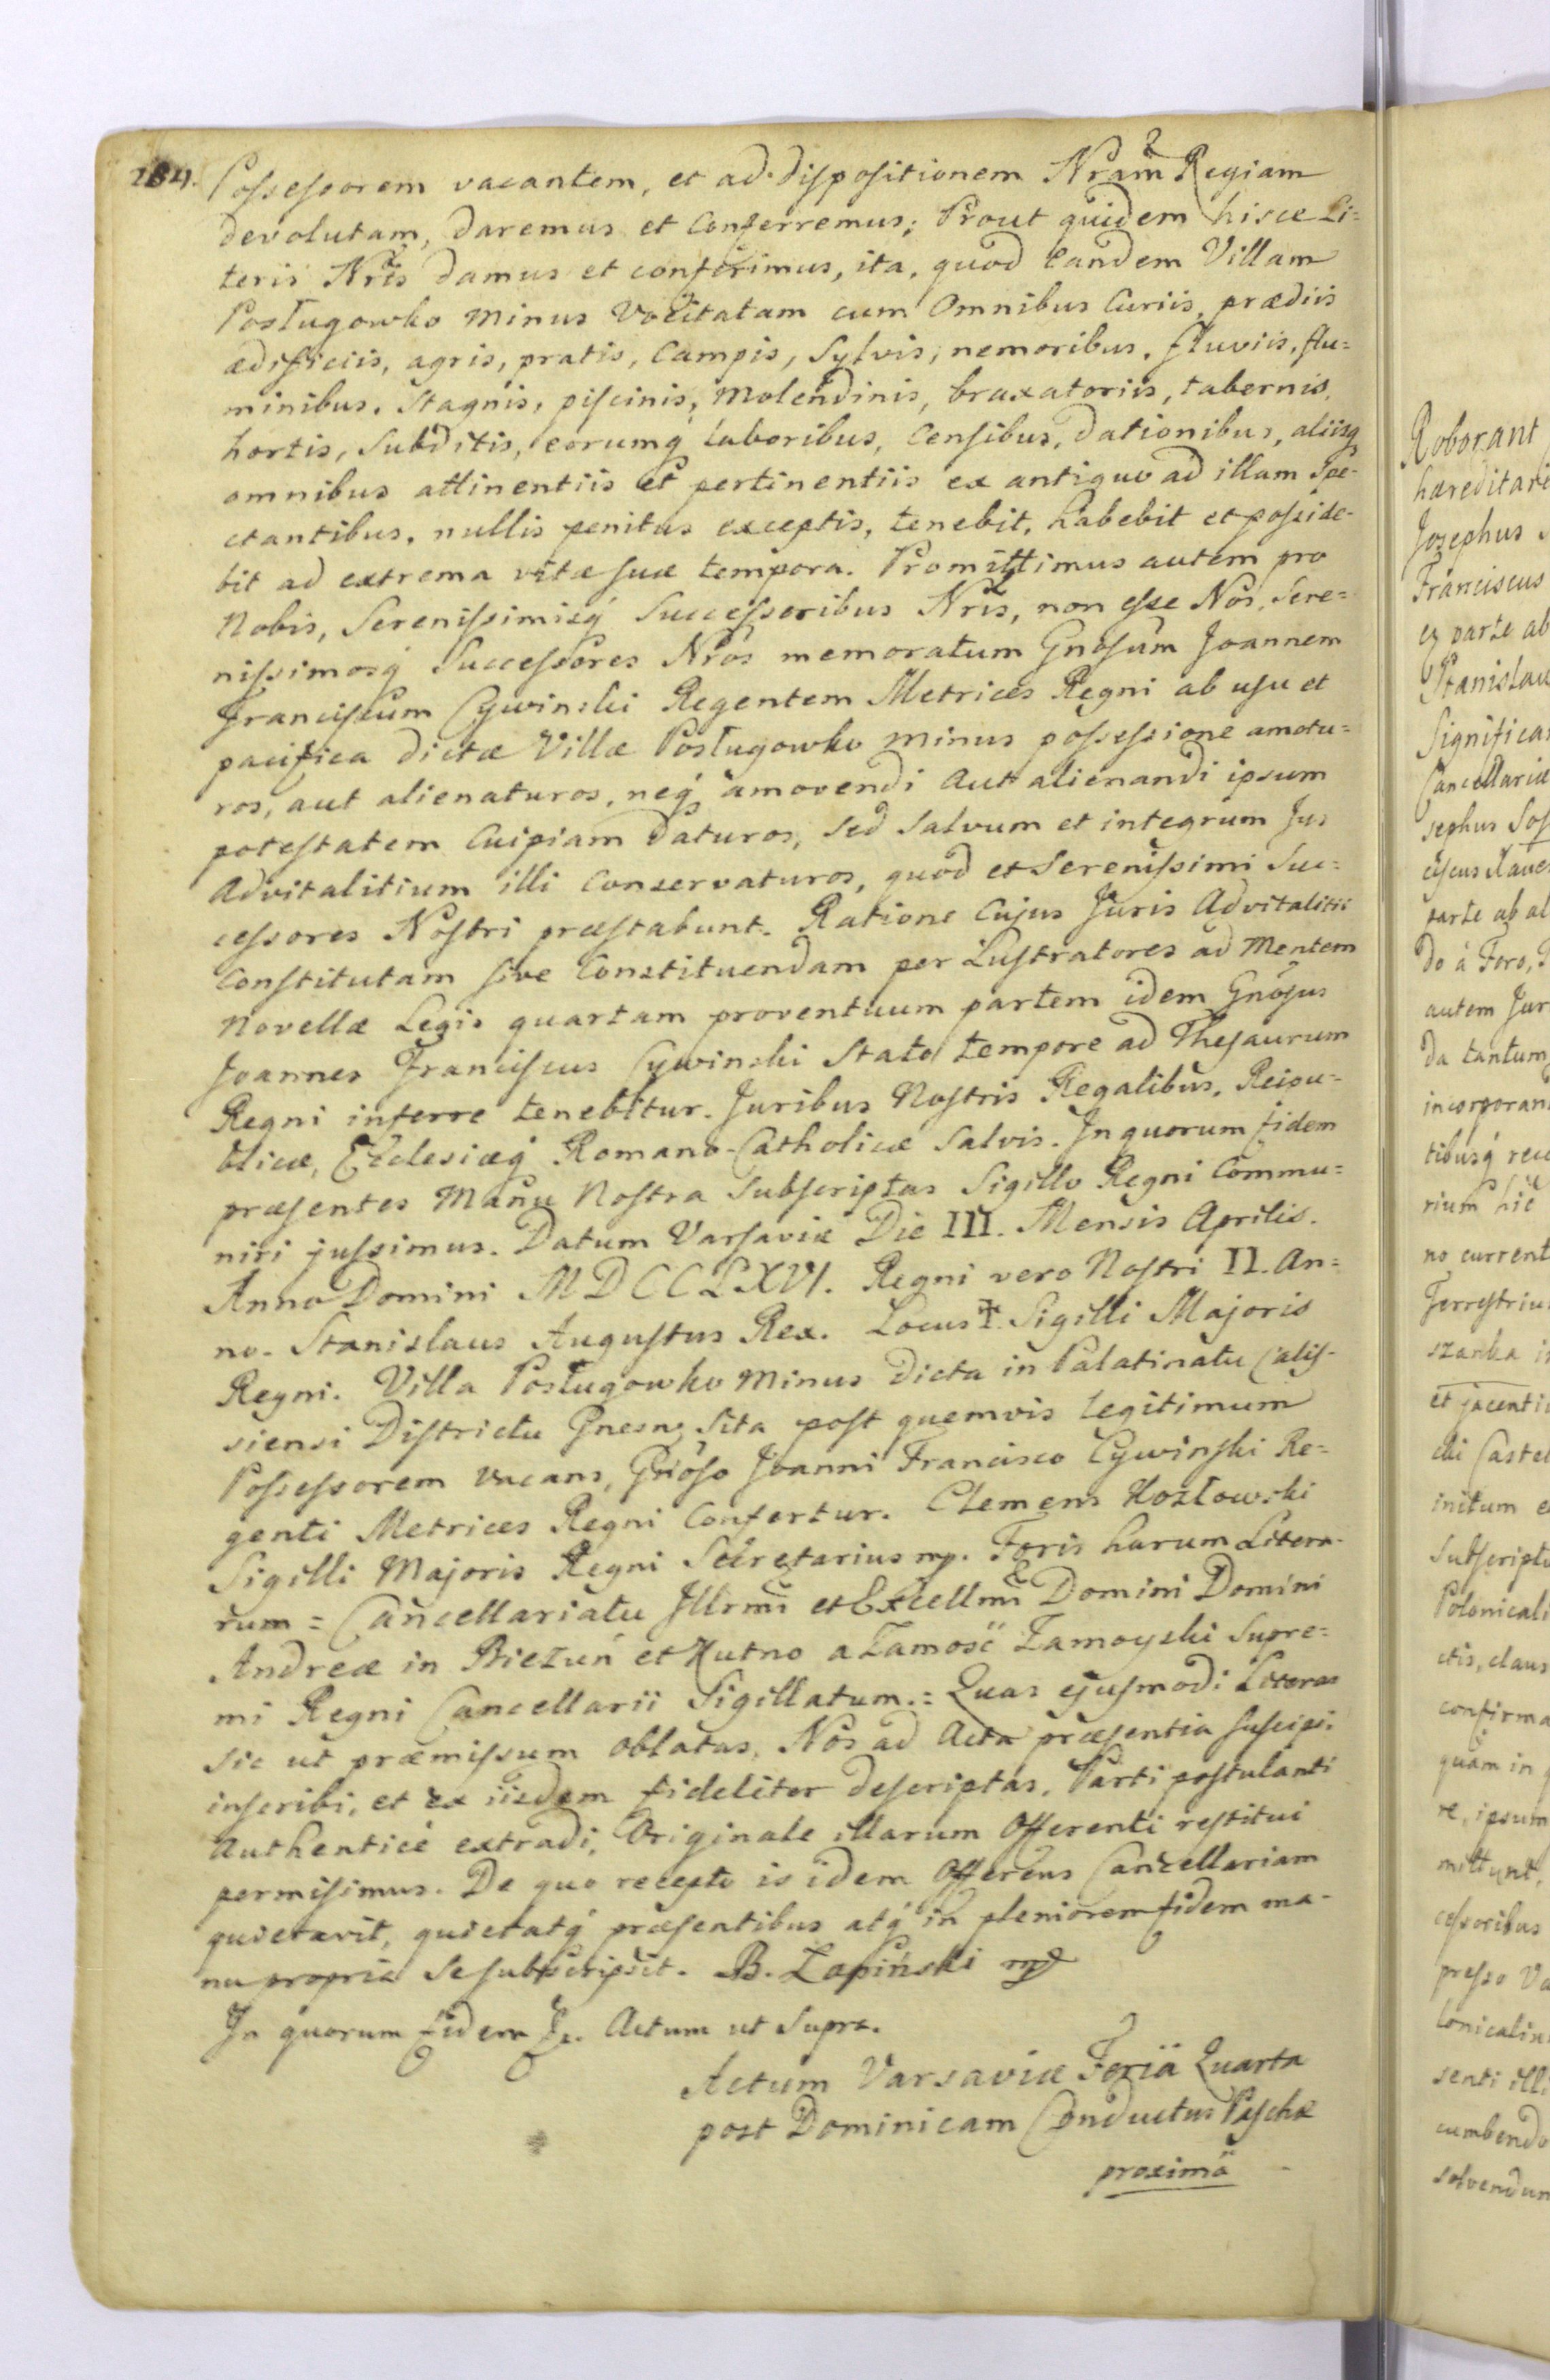 184.
Possessorem vacantem, et ad dispositionem Nram Regiam
devolutam, daremus et Conferremus; Prout quidem hisce Li=
teris Nris damus et conferimus, ita, quod eandem Villam
Postugowko minus Vocitatam cum Omnibus Curiis, prædiis
ædificiis, agris, pratis, Campis, Sylvis, nemoribus, fluviis, flu=
minibus, Stagnis, piscinis, Molendinis, braxatoriis, tabernis,
hortis, Subditis, eorumq́ laboribus, Censibus, dationibus, aliisq
omnibus attinentiis et pertinentiis ex antiquo ad illam Spe-
ctantibus, nullis penitus exceptis, tenebit, habebit et posside-
bit ad extrema vitæ suæ tempora. Promittimus autem pro
Nobis, Serenissimisq́ Successoribus Nris, non esse Nos, Sere=
nissimosq́ Successores Nros memoratum Gnosum Joannem
Franciscum Cywinski Regentem Metrices Regni ab usu et
pacifica dictæ Villæ Postugowko minus possessione amotu=
ros, aut alienaturos, neq́ amovendi Aut alienandi ipsum
potestatem Cuipiam daturos, Sed Salvum et integrum Jus
Advitalitium illi Conservaturos, quod et Serenissimi Suc=
cessores Nostri præstabunt. Ratione Cujus Juris Advitalitii
Constitutam sive Constituendam per Lustratores ad Mentem
Novellæ Legis quartam proventuum partem idem Gnosus
Joannes Franciscus Cywinski Stato tempore ad Thesaurum
Regni inferre tenebitur. Juribus Nostris Regalibus, Reipu-
blicæ, Ecclesiæq́ Romano-Catholicæ Salvis. In quorum fidem
præsentes Manu Nostra Subscriptas Sigillo Regni Commu=
niri jussimus. Datum Varsaviæ Die III. Mensis Aprilis.
Anno Domini MDCCLXVI. Regni vero Nostri II. An=
no. Stanislaus Augustus Rex. Locus ✝. Sigilli Majoris
Regni. Villa Postugowko Minus dicta in Palatinatu Calis-
siensi Districtu Gnesn: Sita post quemvis legitimum
Possessorem vacans, Gnoso Joanni Francisco Cywinski Re=
genti Metrices Regni Confertur. Clemens Kozłowski
Sigilli Majoris Regni Secretarius mp. Foris harum Litera-
rum = Cancellariatu Illrmi et Excellmi Domini Domini
Andreæ in Biezuń et Kutno a Zamość Zamoyski Supre=
mi Regni Cancellarii Sigillatum.= Quas ejusmodi Literas
sic ut præmissum oblatas, Nos ad Acta præsentia suscipi
inscribi, et ex iisdem fideliter descriptas, Parti postulanti
Authenticè extradi, Originale illarum Offerenti restitui
permisimus. De quo recepto is idem Offerens Cancellariam
quietavit, quietatq́ præsentibus atq́ in pleniorem fidem ma-
nu propria Se subscripsit. B. Łapiński mp
In quorum fidem &c. Actum ut Supra.
Actum Varsaviæ Feriâ Quarta
post Dominicam Conductus Paschæ
proximâ
Roborant
hæreditari
Josephus
Franciscus
ex parte ab
Stanislau
Significa
Cancellariæ
sephus Sos
parte ab al
do à Foro,
autem Jur
da tantum
incorporan
tibusq́ rec
rium hic
no current
Terrestriu
szanka
et jacenti
cki Castel
initum e
Subscripto
Polonicali
ctis, claus
confirma
quàm in
re, ipsum
mittunt,
cessoribus
presso Va
lonicalin
senti illi
cumbendo
solvendum